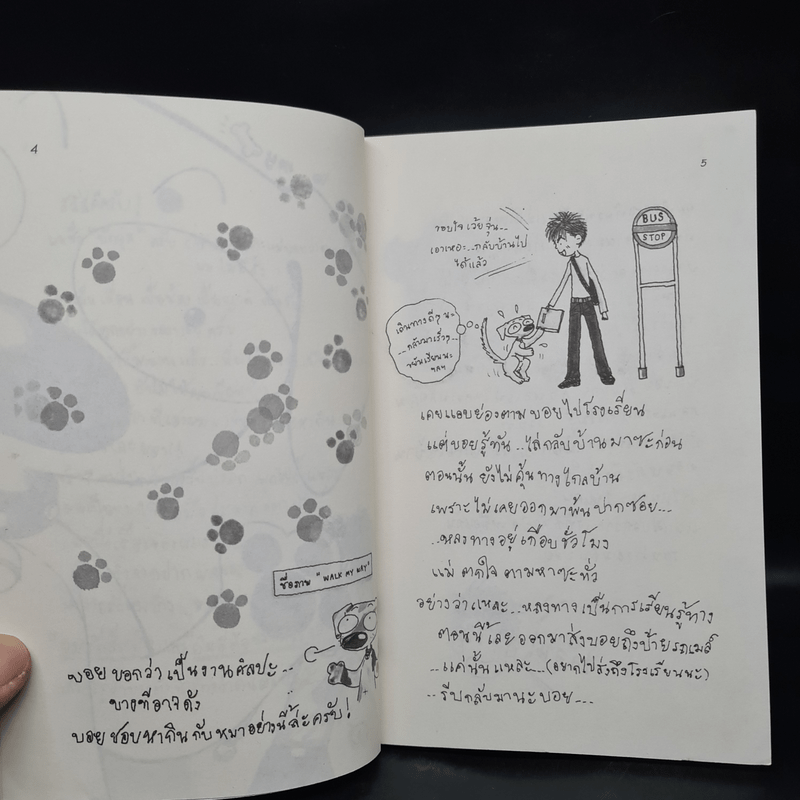 4
ชื่อภาพ "WALK MY WAY"
บอย บอกว่า เป็นงานศิลปะ...
บางทีอาจดัง
บอย ชอบหากินกับหมาอย่างนี้ล่ะครับ!
5
ขอบใจเว้ยจุ่น...
เอาเหอะ...กลับบ้านไป
ได้แล้ว
BUS
STOP
เดินทางดีๆ นะ
...กลับมาเร็วๆ...
ขยันเรียนนะ
ฯลฯ
เคยแอบย่องตามบอยไปโรงเรียน
แต่บอยรู้ทัน ..ไล่กลับบ้านมาซะก่อน
ตอนนั้น ยังไม่คุ้นทางไกลบ้าน
เพราะไม่เคยออกมาพ้นปากซอย...
..หลงทางอยู่เกือบชั่วโมง
แม่ ตกใจ ตามหาซะทั่ว
อย่างว่าแหละ...หลงทางเป็นการเรียนรู้ทาง
ตอนนี้เลยออกมาส่งบอยถึงป้ายรถเมล์
...แค่นั้นแหละ...(อยากไปส่งถึงโรงเรียนนะ)
..รีบกลับมานะบอย...